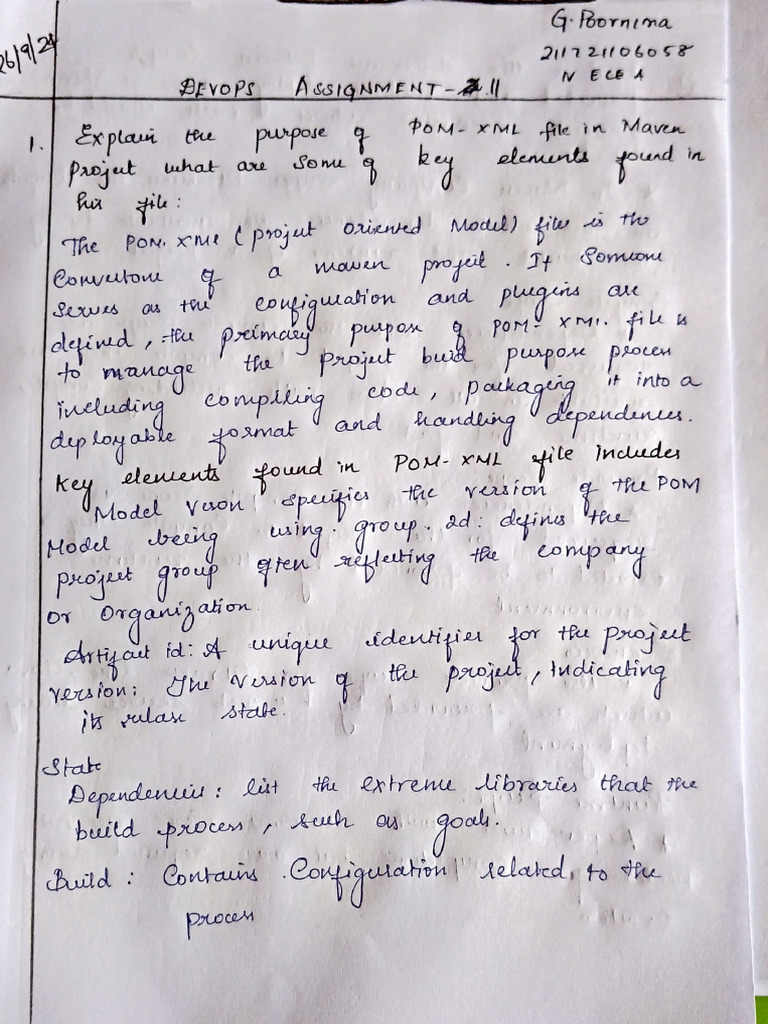 G. Poornima
26/9/24
211721106058
IV ECE A
DEVOPS ASSIGNMENT - II
1. Explain the purpose of POM-XML file in Maven
project what are some of key elements found in
his file:
The POM.XML (project oriented Model) file is the
of a maven project. It Someone
serves as the configuration and plugins are
defined, the primary purpose of POM-XML file is
to manage the project buid purpose process
including compiling code, packaging it into a
deployable format and handling dependences.
key elements found in POM-XML file includes
Model verson specifies the version of the POM
Model being using. group. id: defines the
project group often reflecting the company
or organization.
Artifact id: A unique identifier for the project
version: The version of the project, indicating
its relase state.
State
Dependencies: list the extreme libraries that the
build process, such as goals.
Build: Contains Configuration related to the
process